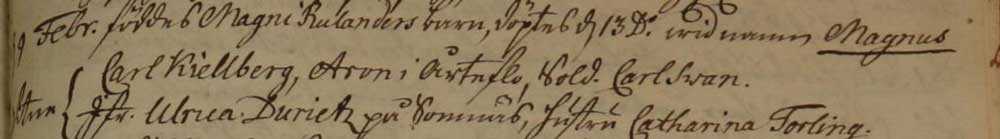 9 Febr. föddes Magni Rulanders barn, döptes d 13 D:o wid namn Magnus
Carl Kiellberg, Aron i Arteflo, Sold. Carl Swan.
Jfr. Ulrica Duriek på Somnäs, hustru Catharina Torling.